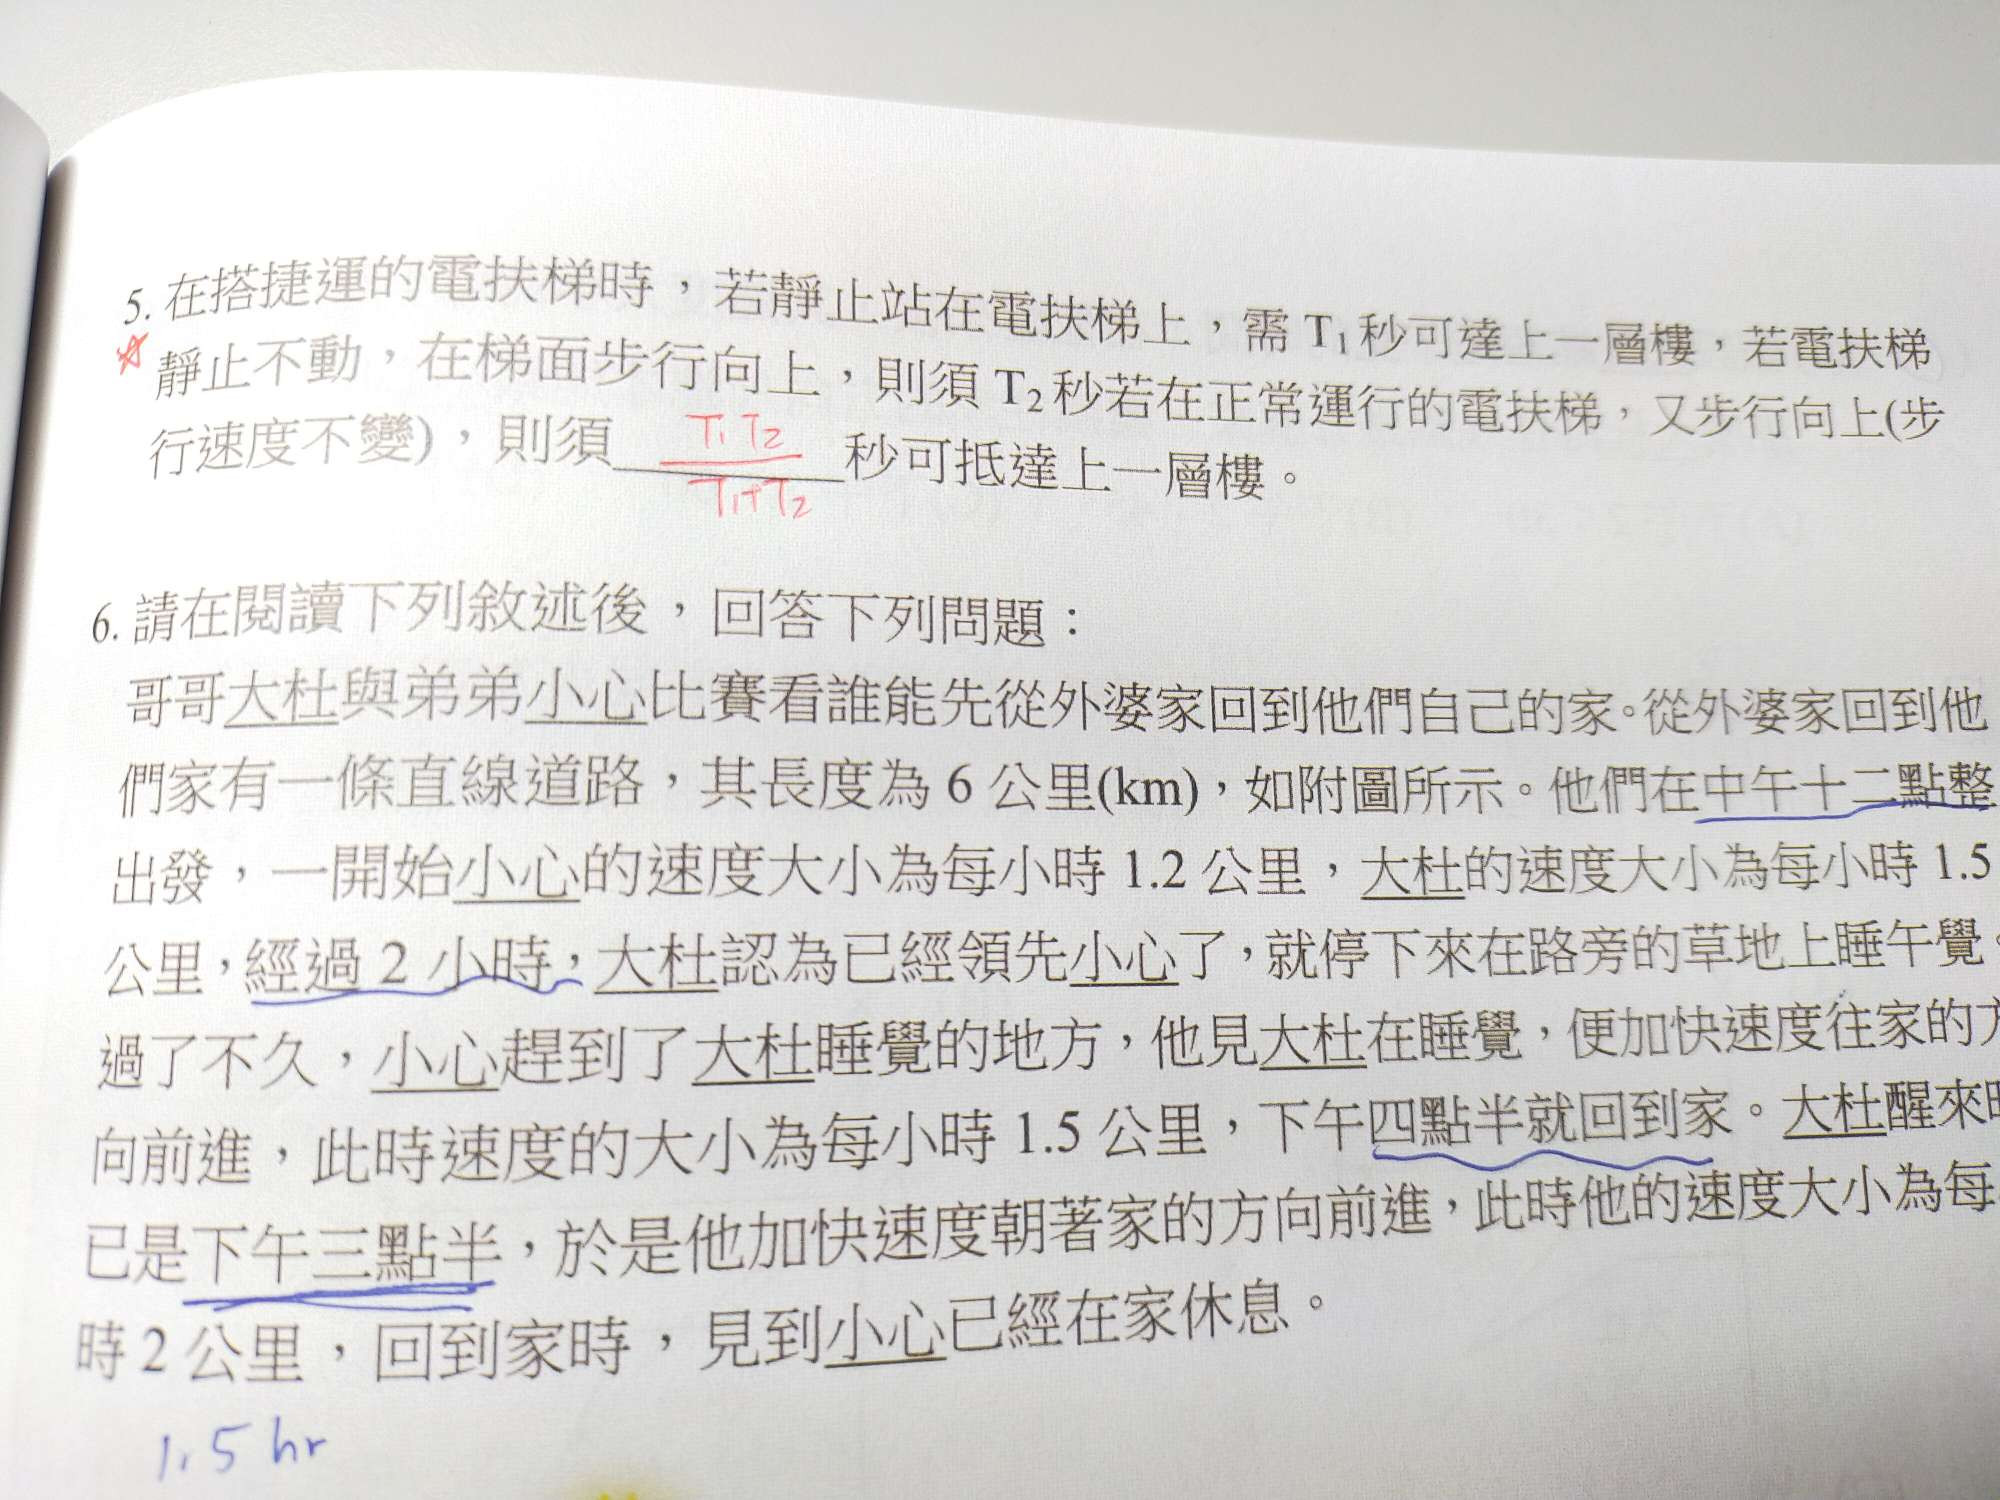 5. 在搭捷運的電扶梯時，若靜止站在電扶梯上，需 T₁ 秒可達上一層樓，若電扶梯
☆ 靜止不動，在梯面步行向上，則須 T₂ 秒若在正常運行的電扶梯，又步行向上(步
行速度不變)，則須 T₁T₂ / T₁+T₂ 秒可抵達上一層樓。
6. 請在閱讀下列敘述後，回答下列問題：
哥哥大杜與弟弟小心比賽看誰能先從外婆家回到他們自己的家。從外婆家回到他
們家有一條直線道路，其長度為 6 公里(km)，如附圖所示。他們在中午十二點整
出發，一開始小心的速度大小為每小時 1.2 公里，大杜的速度大小為每小時 1.5
公里，經過 2 小時，大杜認為已經領先小心了，就停下來在路旁的草地上睡午覺。
過了不久，小心趕到了大杜睡覺的地方，他見大杜在睡覺，便加快速度往家的方
向前進，此時速度的大小為每小時 1.5 公里，下午四點半就回到家。大杜醒來時
已是下午三點半，於是他加快速度朝著家的方向前進，此時他的速度大小為每小
時 2 公里，回到家時，見到小心已經在家休息。
1.5 hr